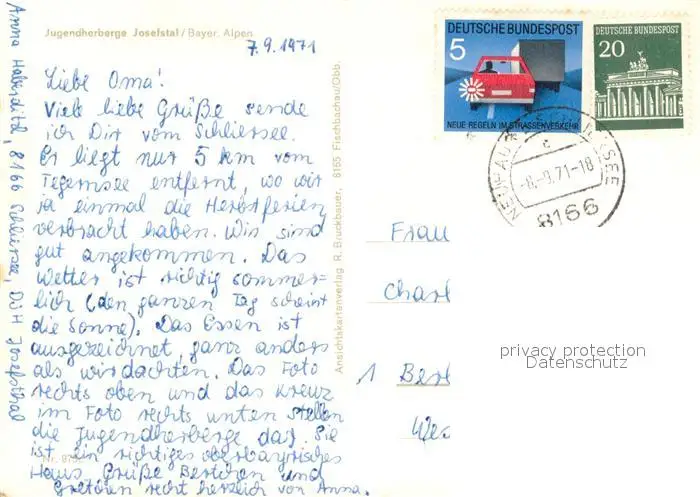 Jugendherberge Josefstal / Bayer. Alpen
7.9.1971
Liebe Oma!
Viele liebe Grüße sende
ich Dir vom Schliersee.
Er liegt nur 5 km vom
Tegernsee entfernt, wo wir
ja einmal die Herbstferien
verbracht haben. Wir sind
gut angekommen. Das
Wetter ist richtig sommer-
lich (den ganzen Tag scheint
die Sonne). Das Essen ist
ausgezeichnet, ganz anders
als wir dachten. Das Foto
rechts oben und das Kreuz
im Foto rechts unten stellen
die Jugendherberge dar. Sie
ist ein richtiges oberbayrisches
Haus. Grüße Bertchen und
Gretchen recht herzlich von Anna.
Anna 8166 Schliersee, DJH Josefsthal
Ansichtskartenverlag R. Bruckbauer, 8165 Fischbachau/Obb.
DEUTSCHE BUNDESPOST
5
NEUE REGELN IM STRASSENVERKEHR
DEUTSCHE BUNDESPOST
20
-9.71-18
8166
Frau
Charl
1 Berl
Wes
privacy protection
Datenschutz